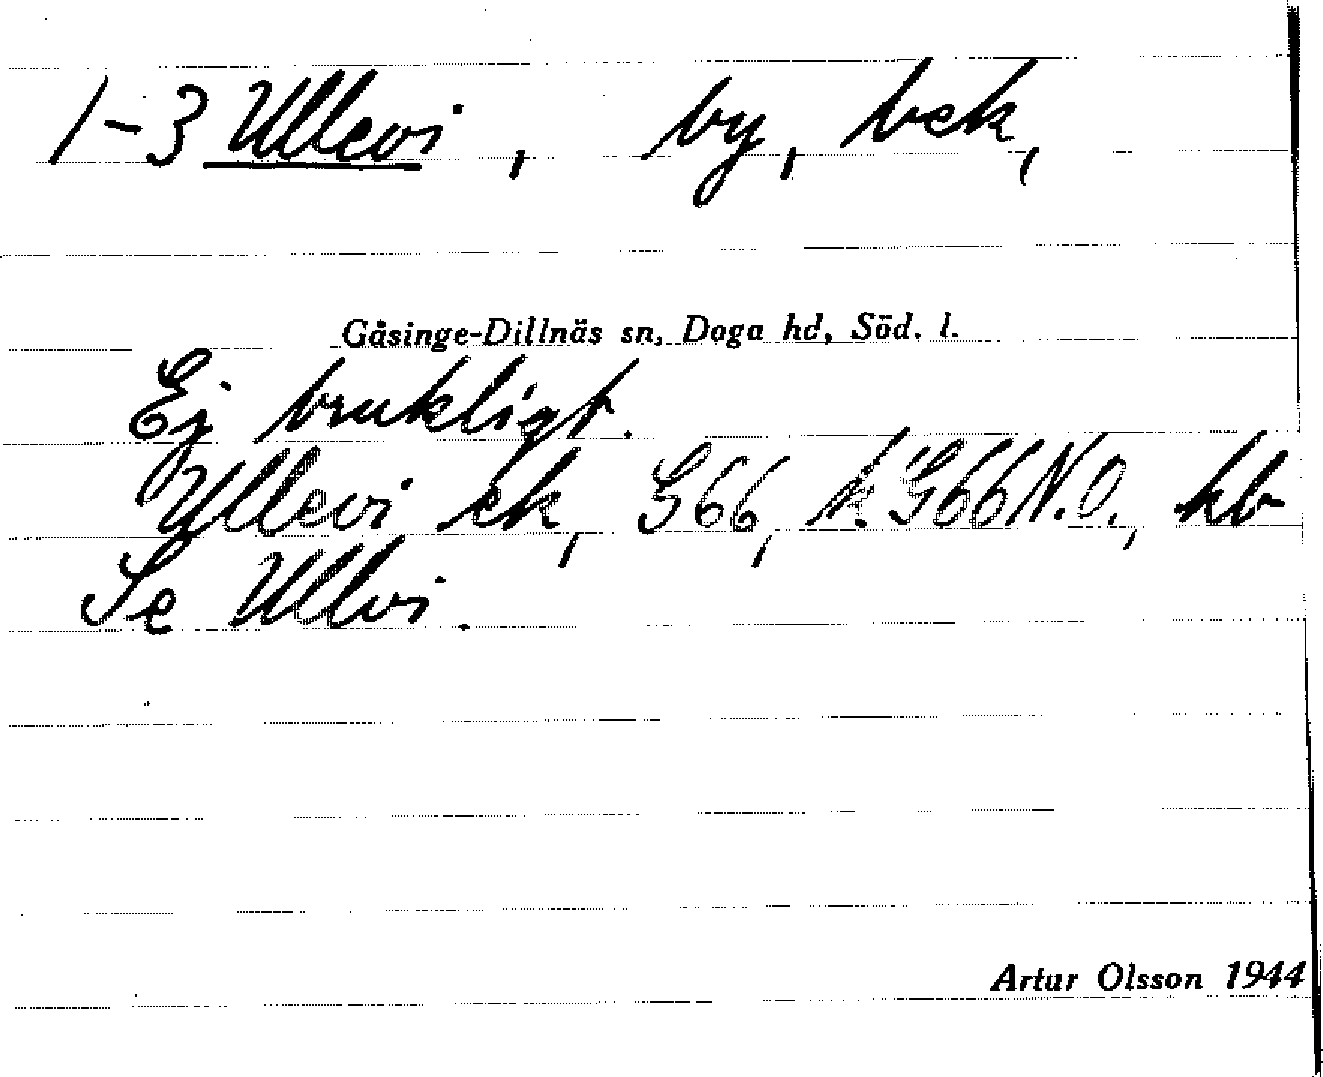 1-3 Ullevi, by, bek,
Gåsinge-Dillnäs sn, Daga hd, Söd. l.
Ej brukligt.
Ullevi ek, G66, k. G66N.O., kb
Se Ullvi.
Artur Olsson 1944